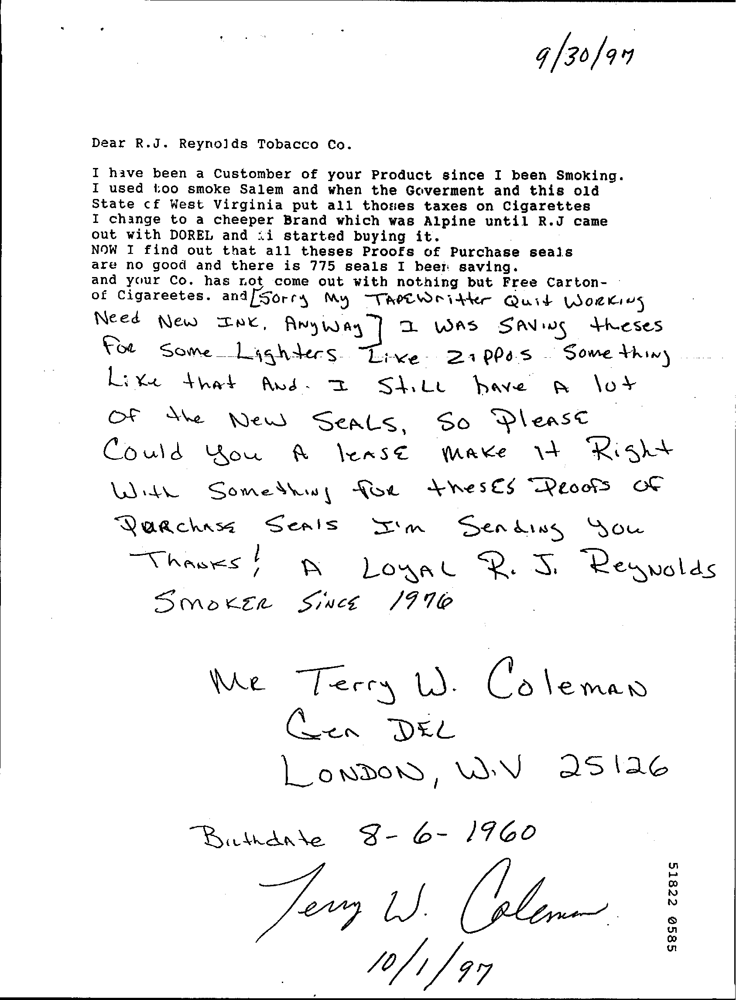 9/30/97
Dear R.J. Reynolds Tobacco Co.
I have been a Customber of your Product since I been Smoking.
I used too smoke Salem and when the Goverment and this old
State of West Virginia put all thoses taxes on Cigarettes
I change to a cheeper Brand which was Alpine until R.J came
out with DOREL and i started buying it.
NOW I find out that all theses Proofs of Purchase seals
are no good and there is 775 seals I been saving.
and your Co. has not come out with nothing but Free Carton-
of Cigareetes. and [Sorry My TAPEWritter Quit Working
Need New INK, ANyWAy] I WAS SAViNg theses
For Some Lighters Like ZiPPOS Something
Like that And. I StiLL have A lot
OF the New SEALS, So PleASE
Could you A leASE MAKE it Right
With Something for thesEs Proofs OF
PurchASE SeAlS I'm Sending you
THANKS! A LOyAL R. J. ReyNolds
SMOKER SiNCE 1976
MR Terry W. ColemAN
Gen DEL
LONDON, W.V 25126
BirthdAte 8-6-1960
Terry W. Coleman
10/1/97
51822 0585